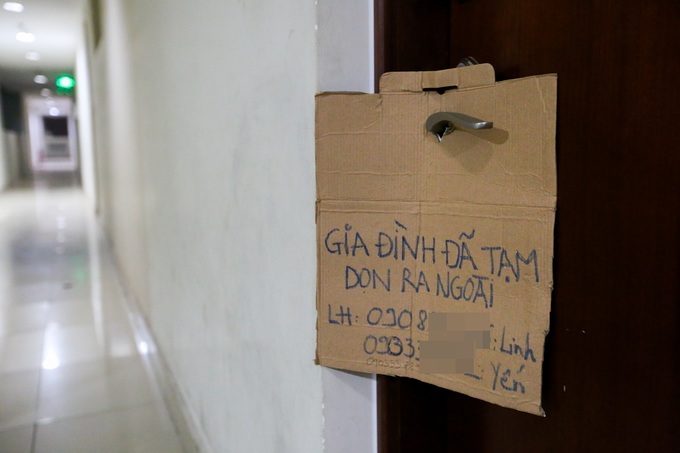 GIA ĐÌNH ĐÃ TẠM
DỌN RA NGOÀI
LH: 0908 : Linh
0933 : Yến